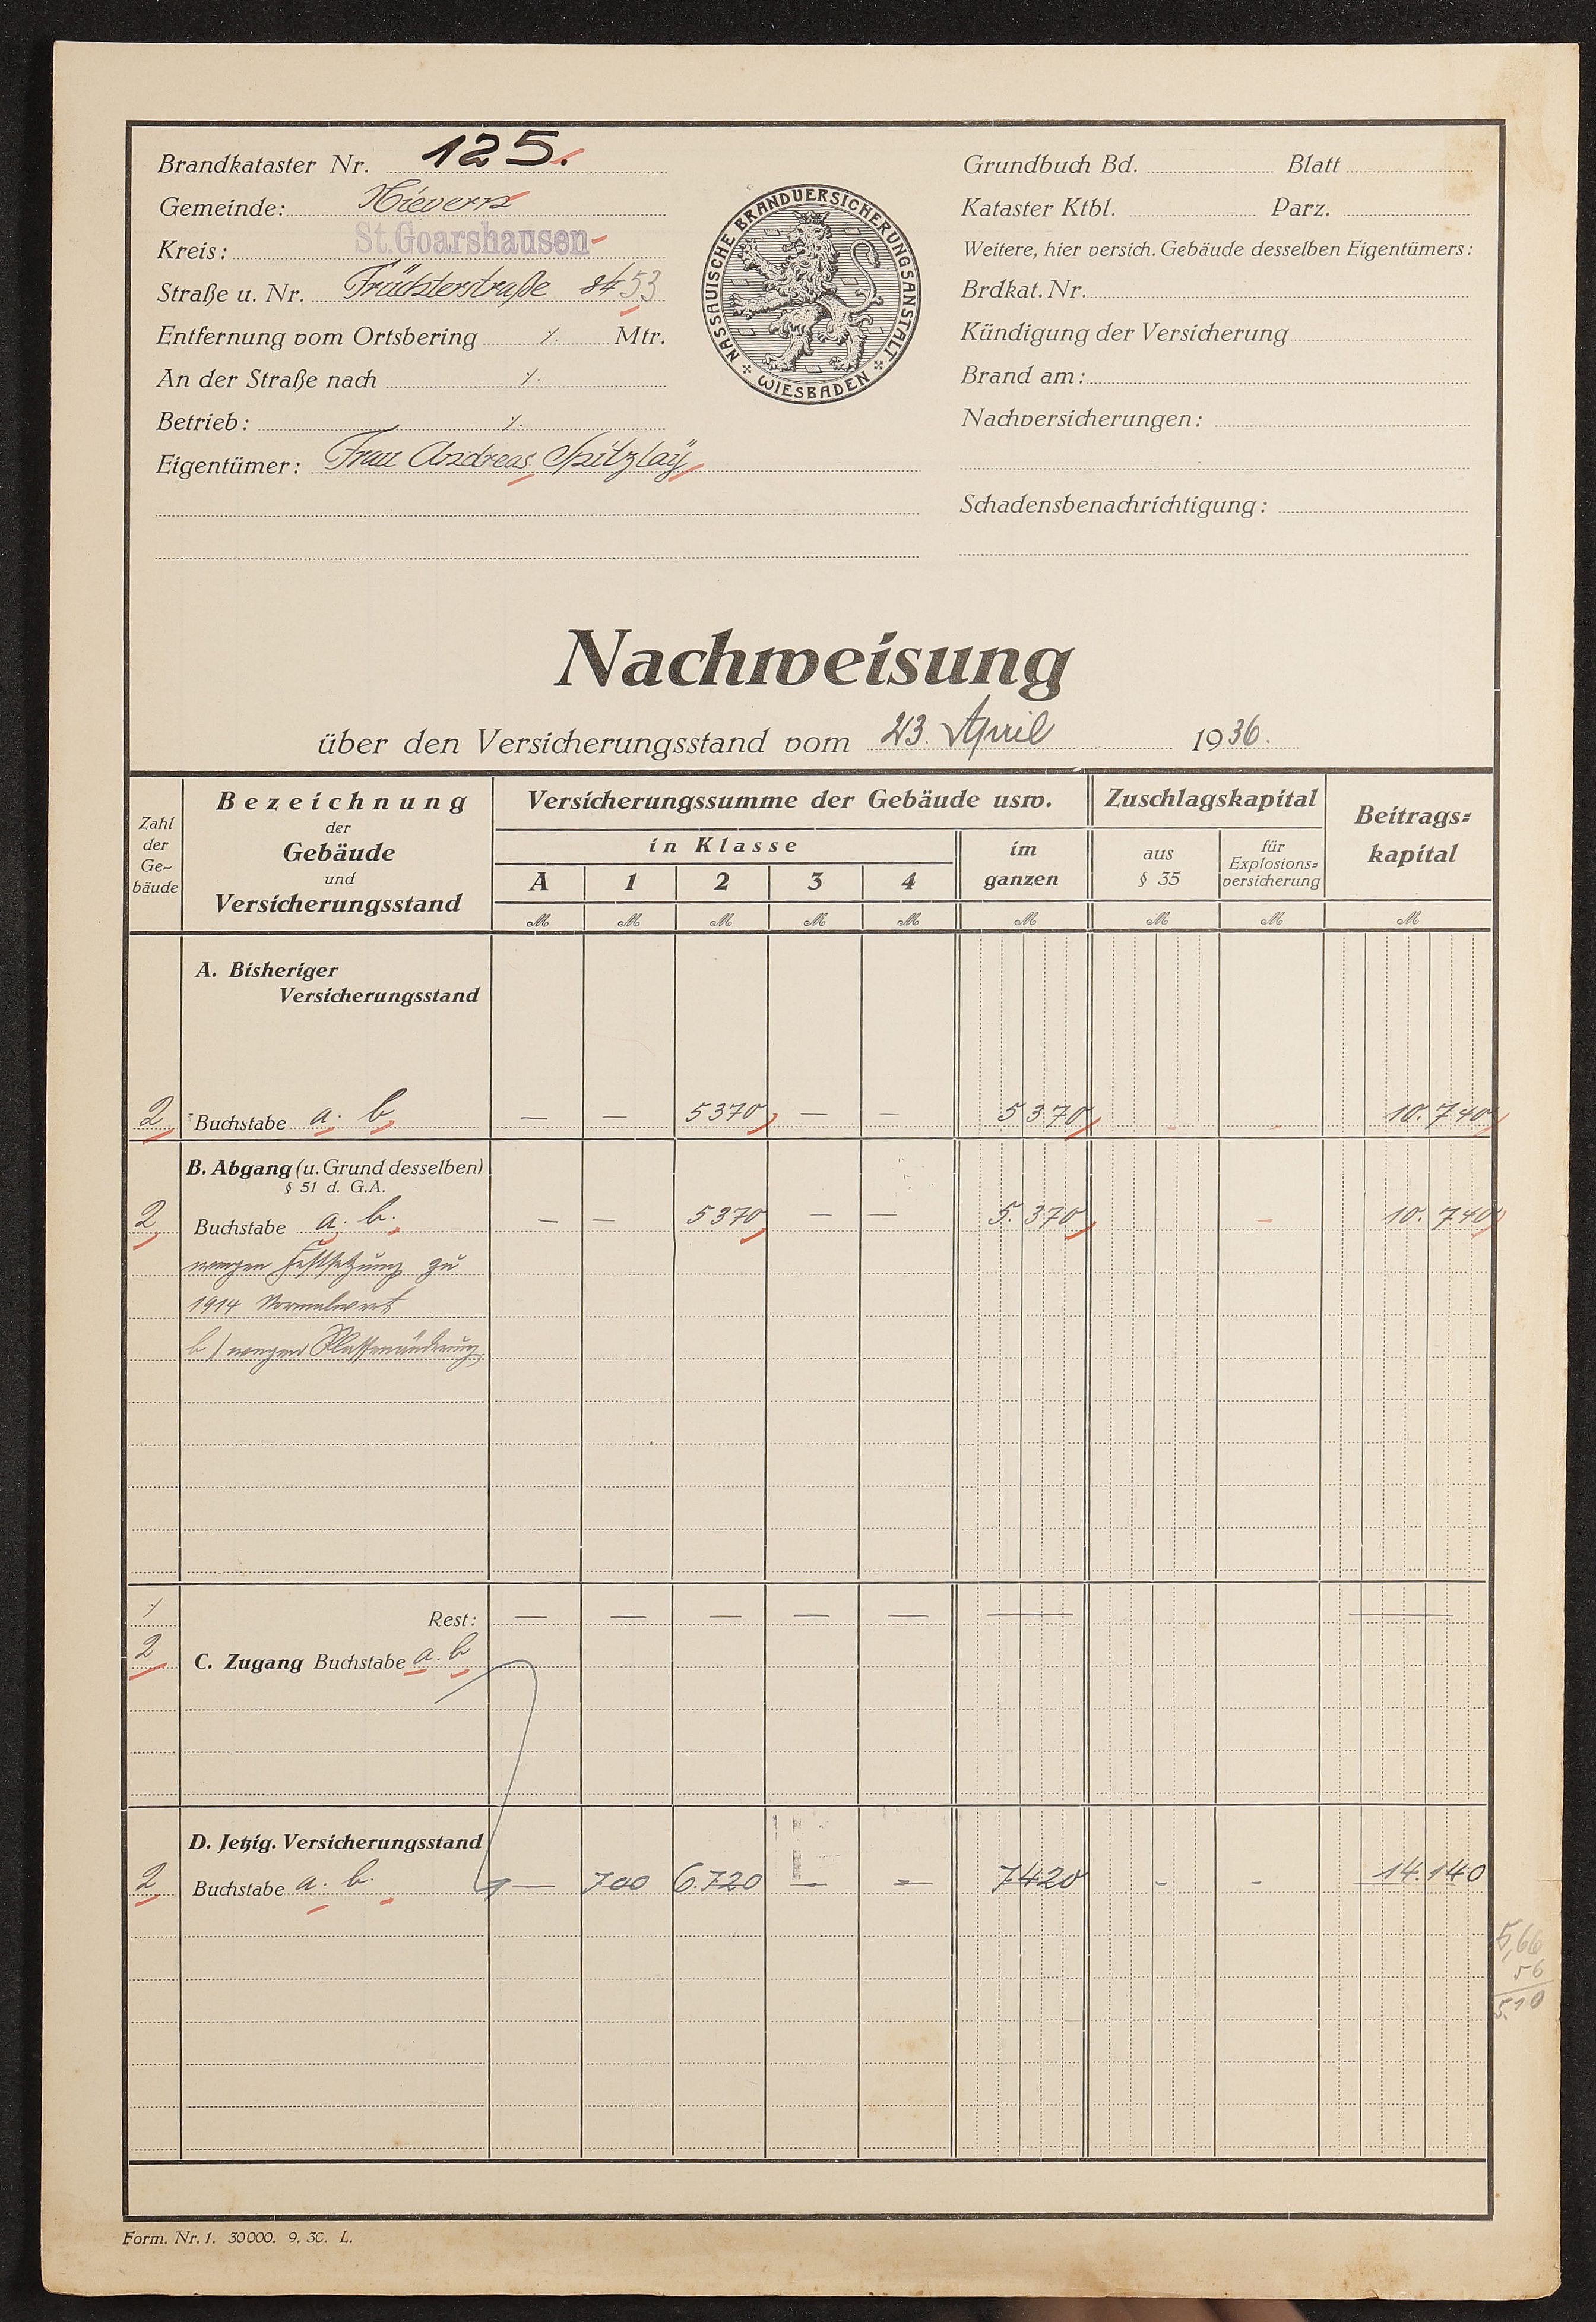 Brandkataster Nr. 125.
Gemeinde: Nievern
Kreis: St. Goarshausen
Straße u. Nr. Früchterstraße 53
Entfernung vom Ortsbering ⁒ Mtr.
An der Straße nach ⁒
Betrieb: ⁒
Eigentümer: Frau Andreas Spitzlaÿ
NASSAUISCHE BRANDVERSICHERUNGSANSTALT
WIESBADEN
Grundbuch Bd. Blatt
Kataster Ktbl. Parz.
Weitere, hier versich. Gebäude desselben Eigentümers:
Brdkat. Nr.
Kündigung der Versicherung
Brand am:
Nachversicherungen:
Schadensbenachrichtigung:
Nachweisung
über den Versicherungsstand vom 23. April 1936.
Zahl der Ge- bäude
Bezeichnung der Gebäude und Versicherungsstand
Versicherungssumme der Gebäude usw.
in Klasse
A 1 2 3 4
im ganzen
Zuschlagskapital
aus § 35
für Explosions= versicherung
Beitrags= kapital
M M M M M M M M M
A. Bisheriger
Versicherungsstand
2 Buchstabe a. b. — — 5370 — — 5370 - - 10.740
B. Abgang (u. Grund desselben)
§ 51 d. G.A.
2 Buchstabe a. b. — — 5370 — — 5.370 - 10.740
wegen Festsetzung zu
1914 Normalwert
b) wegen Klassenänderung
⁒ Rest: — — — — — — —
2 C. Zugang Buchstabe a. b
D. Jetzig. Versicherungsstand
2 Buchstabe a. b. — 700 6.720 — — 7420 - - 14.140
5,66
56
5.10
Form. Nr. 1. 30000. 9. 30. L.